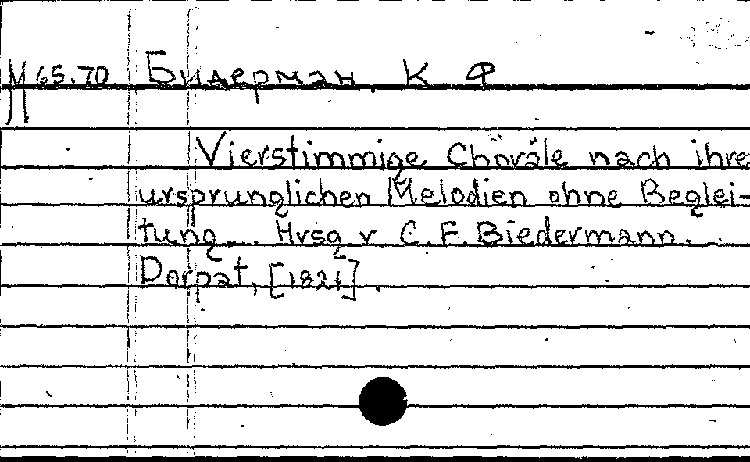 М 65.70 Бидерман, К Ф
Vierstimmige Choräle nach ihre
ursprunglichen Melodien ohne Beglei-
tung... Hrsg v C. F. Biedermann.
Dorpat, [1821].